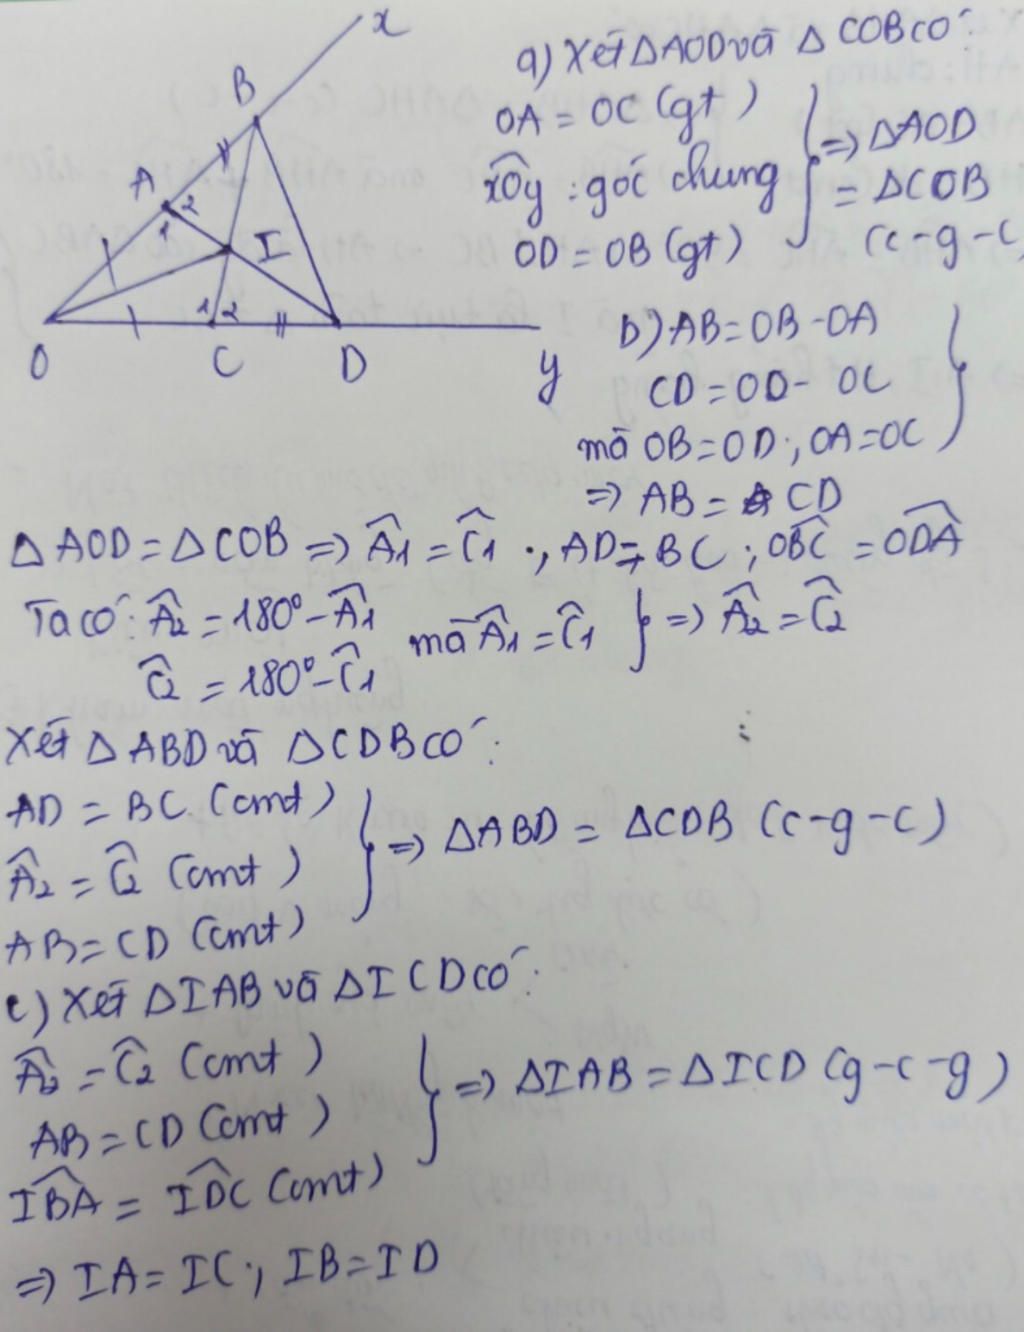 x
B
A
1 2
I
1 2
O C D y
a) Xét ΔAOD và Δ COB có:
OA = OC (gt)
xOy : góc chung
OD = OB (gt)
} => ΔAOD
= ΔCOB
(c-g-c
b) AB = OB - OA
CD = OD - OC
mà OB = OD ; OA = OC
}
=> AB = CD
Δ AOD = Δ COB => Â1 = Ĉ1 ; AD = BC ; OBC = ODA
Ta có: Â2 = 180° - Â1
Ĉ2 = 180° - Ĉ1
mà Â1 = Ĉ1 } => Â2 = Ĉ2
Xét Δ ABD và Δ CDB có:
AD = BC (cmt)
Â2 = Ĉ2 (cmt)
AB = CD (cmt)
} => ΔABD = ΔCDB (c-g-c)
c) Xét ΔIAB và ΔICD có:
Â2 = Ĉ2 (cmt)
AB = CD (cmt)
IBA = IDC (cmt)
} => ΔIAB = ΔICD (g-c-g)
=> IA = IC ; IB = ID